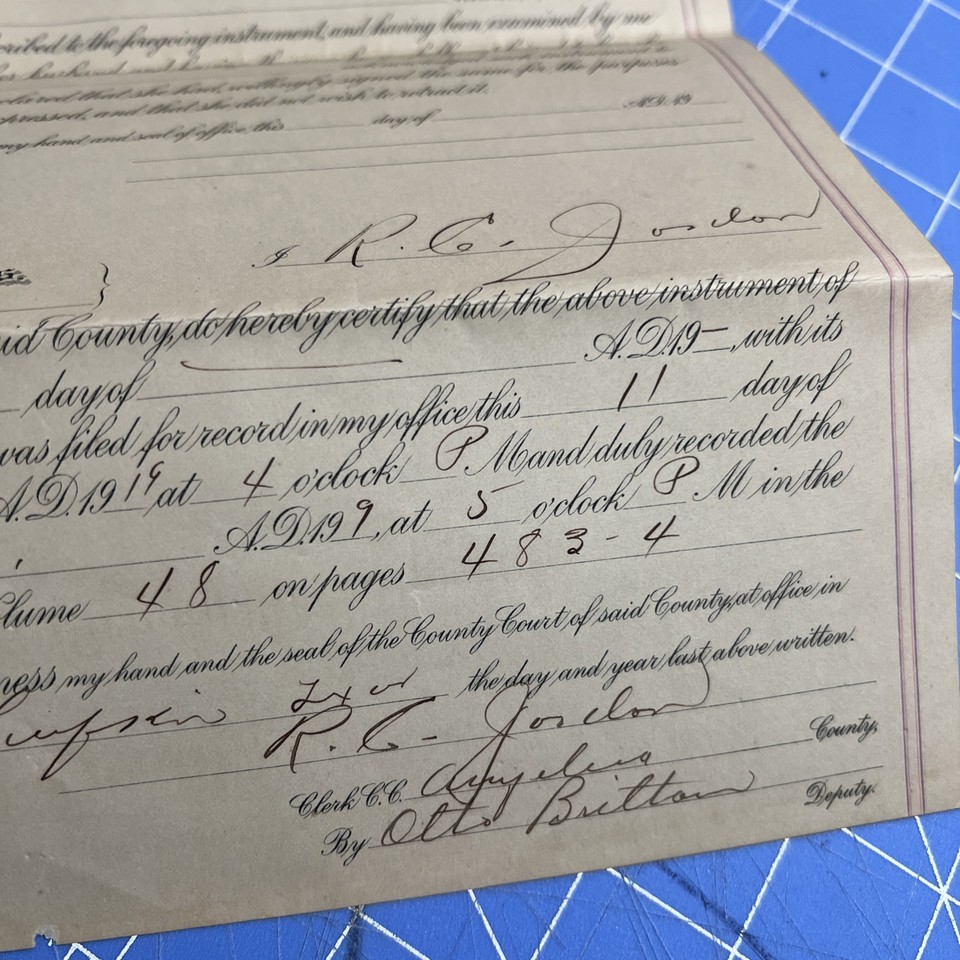 cribed to the foregoing instrument, and having been examined by me
husband, and having
clared that she had willingly signed the same for the purposes
pressed, and that she did not wish to retract it.
my hand and seal of office this day of A.D. 19
I R. C. Jordon
id County, do hereby certify that the above instrument of
day of A.D. 19—, with its
was filed for record in my office this 11 day of
A.D. 1919 at 4 o'clock P M and duly recorded the
A.D. 199, at 5 o'clock P M in the
lume 48 on pages 483-4
ness my hand and the seal of the County Court of said County, at office in
the day and year last above written.
R. C. Jordon
Clerk C.C. Angelina County,
By Otto Britton Deputy.